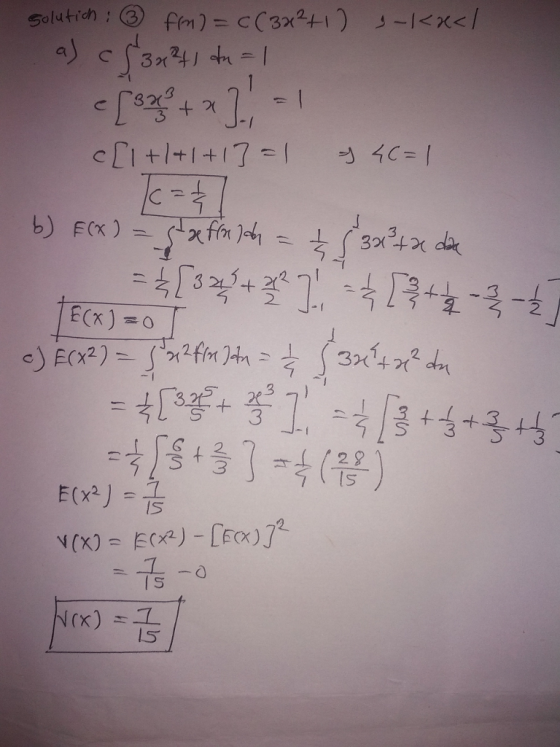 Solution : ③ f(x) = c(3x²+1) , -1<x<1
a) c ∫₋₁¹ 3x²+1 dx = 1
c [3x³/3 + x]₋₁¹ = 1
c[1+1+1+1] = 1 ⇒ 4C = 1
C = 1/4
b) E(x) = ∫₋₁¹ x f(x) dx = 1/4 ∫₋₁¹ 3x³+x dx
= 1/4 [3x⁴/4 + x²/2]₋₁¹ = 1/4 [3/4 + 1/2 - 3/4 - 1/2]
E(x) = 0
c) E(x²) = ∫₋₁¹ x² f(x) dx = 1/4 ∫₋₁¹ 3x⁴+x² dx
= 1/4 [3x⁵/5 + x³/3]₋₁¹ = 1/4 [3/5 + 1/3 + 3/5 + 1/3]
= 1/4 [6/5 + 2/3] = 1/4 (28/15)
E(x²) = 7/15
V(x) = E(x²) - [E(x)]²
= 7/15 - 0
V(x) = 7/15